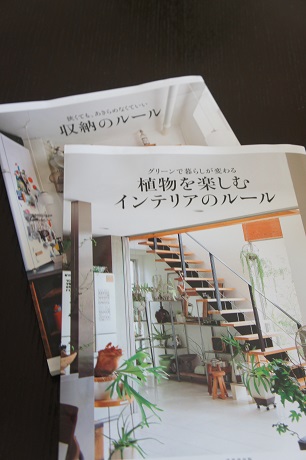 狭くても、あきらめなくていい
収納のルール
グリーンで暮らしが変わる
植物を楽しむ
インテリアのルール